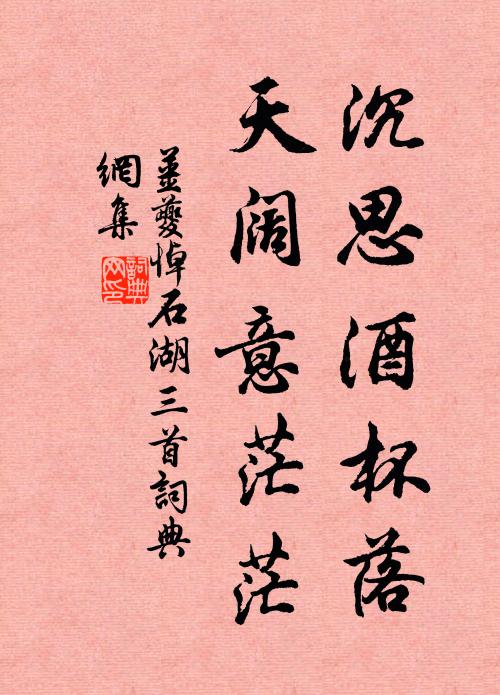 沉思酒杯落
天阔意茫茫
姜夔悼石湖三首詞典
網集
詞典
网印